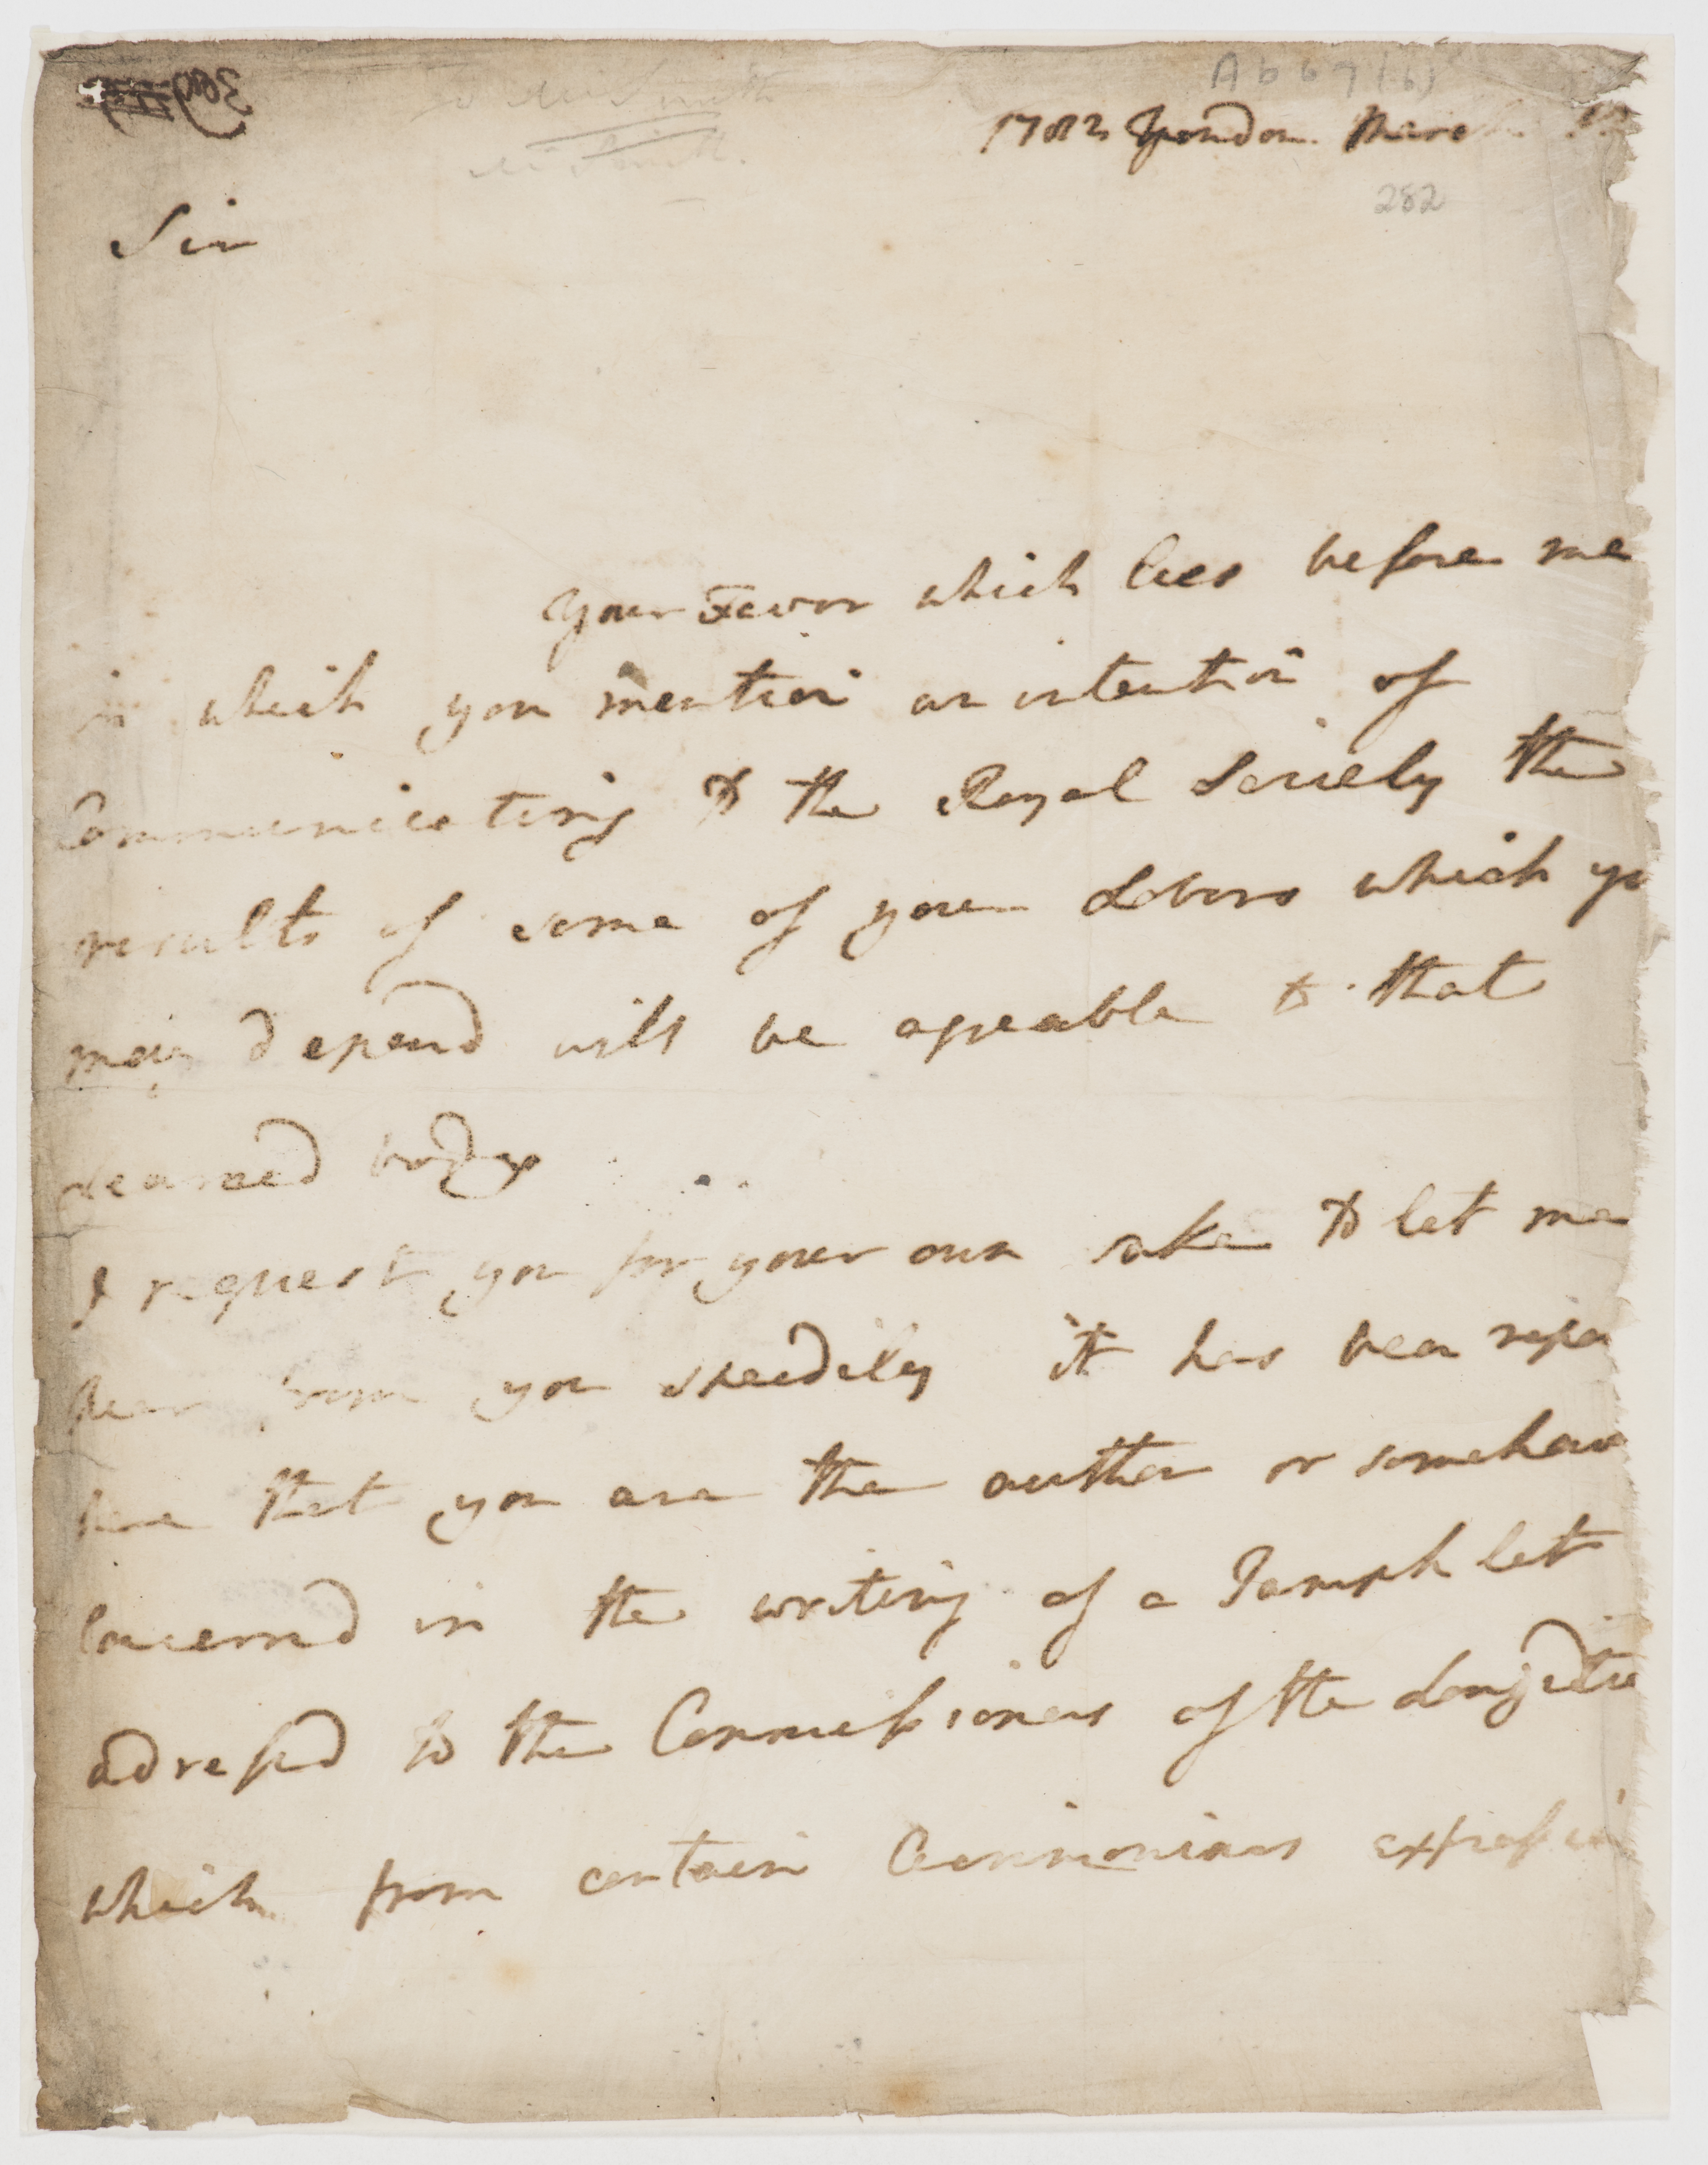 A b 67 (6)
1782 London. March
282
Sir
Your Favor which lies before me
in which you mention an intention of
Communicating to the Royal Society the
results of some of your Labors which yo
may depend will be agreable to that
Learned body
I request you for your own sake to let me
hear from you speedily it has been repo
here that you are the author or somehow
Concernd in the writing of a Pamphlet
adressd to the Commissioners of the Longitu
which from certain Acrimonious expressio